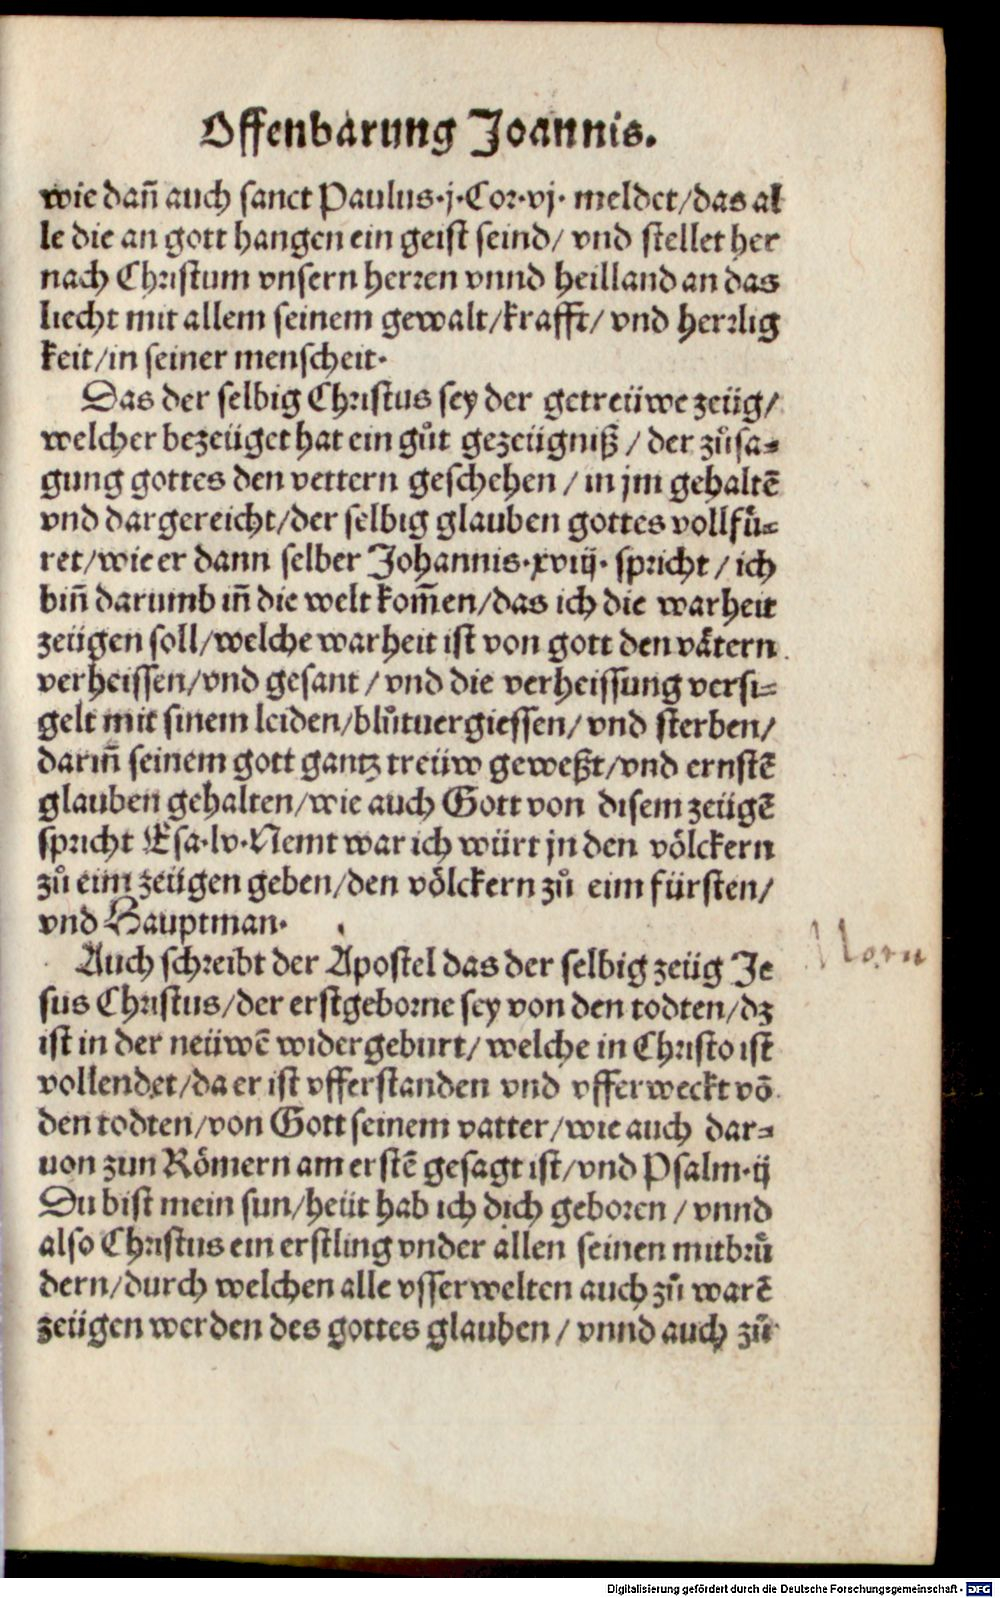 Offenbarung Joannis.
wie dañ auch sanct Paulus·j·Cor·vj· meldet/das al
le die an gott hangen ein geist seind/ vnd stellet her
nach Christum vnsern herren vnnd heilland an das
liecht mit allem seinem gewalt/krafft/ vnd herrlig
keit/in seiner menscheit·
Das der selbig Christus sey der getreüwe zeüg/
welcher bezeüget hat ein gůt gezeügniß / der zůsa⸗
gung gottes den vettern geschehen / in jm gehaltē
vnd dargereicht/der selbig glauben gottes vollfů⸗
ret/wie er dann selber Johannis·xviij· spricht / ich
biñ darumb iñ die welt kom̃en/das ich die warheit
zeügen soll/welche warheit ist von gott den våtern
verheissen/vnd gesant / vnd die verheissung versi⸗
gelt mit sinem leiden/blůtuergiessen/ vnd sterben/
dariñ seinem gott gantz treüw geweßt/vnd ernstē
glauben gehalten/wie auch Gott von disem zeügē
spricht Esa·lv·Nemt war ich würt jn den völckern
zů eim zeügen geben/den völckern zů eim fürsten/
vnd Hauptman·
Auch schreibt der Apostel das der selbig zeüg Je
sus Christus/der erstgeborne sey von den todten/dz
ist in der neüwē widergeburt/ welche in Christo ist
vollendet/da er ist vfferstanden vnd vfferweckt vō
den todten/von Gott seinem vatter/wie auch dar⸗
uon zun Römern am erstē gesagt ist/vnd Psalm·ij
Du bist mein sun/heüt hab ich dich geboren / vnnd
also Christus ein erstling vnder allen seinen mitbrů
dern/durch welchen alle vsserwelten auch zů warē
zeügen werden des gottes glauben / vnnd auch zů
Digitalisierung gefördert durch die Deutsche Forschungsgemeinschaft - DFG